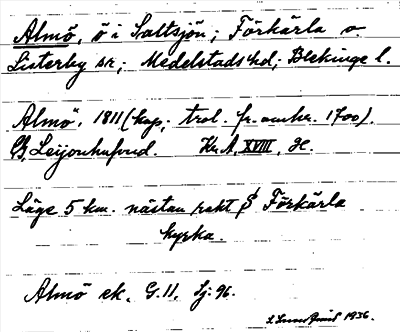 Almö, ö i Saltsjön; Förkärla o.
Listerby sn; Medelstads hd; Blekinge l.
Almö, 1811 (kop; trol. fr. omkr. 1700).
G. Leijonhufvud. Kr. A, XVIII, H.
Läge 5 km. nästan rakt S Förkärla
kyrka.
Almö ek. G. 11, Sj. 96.
1936.